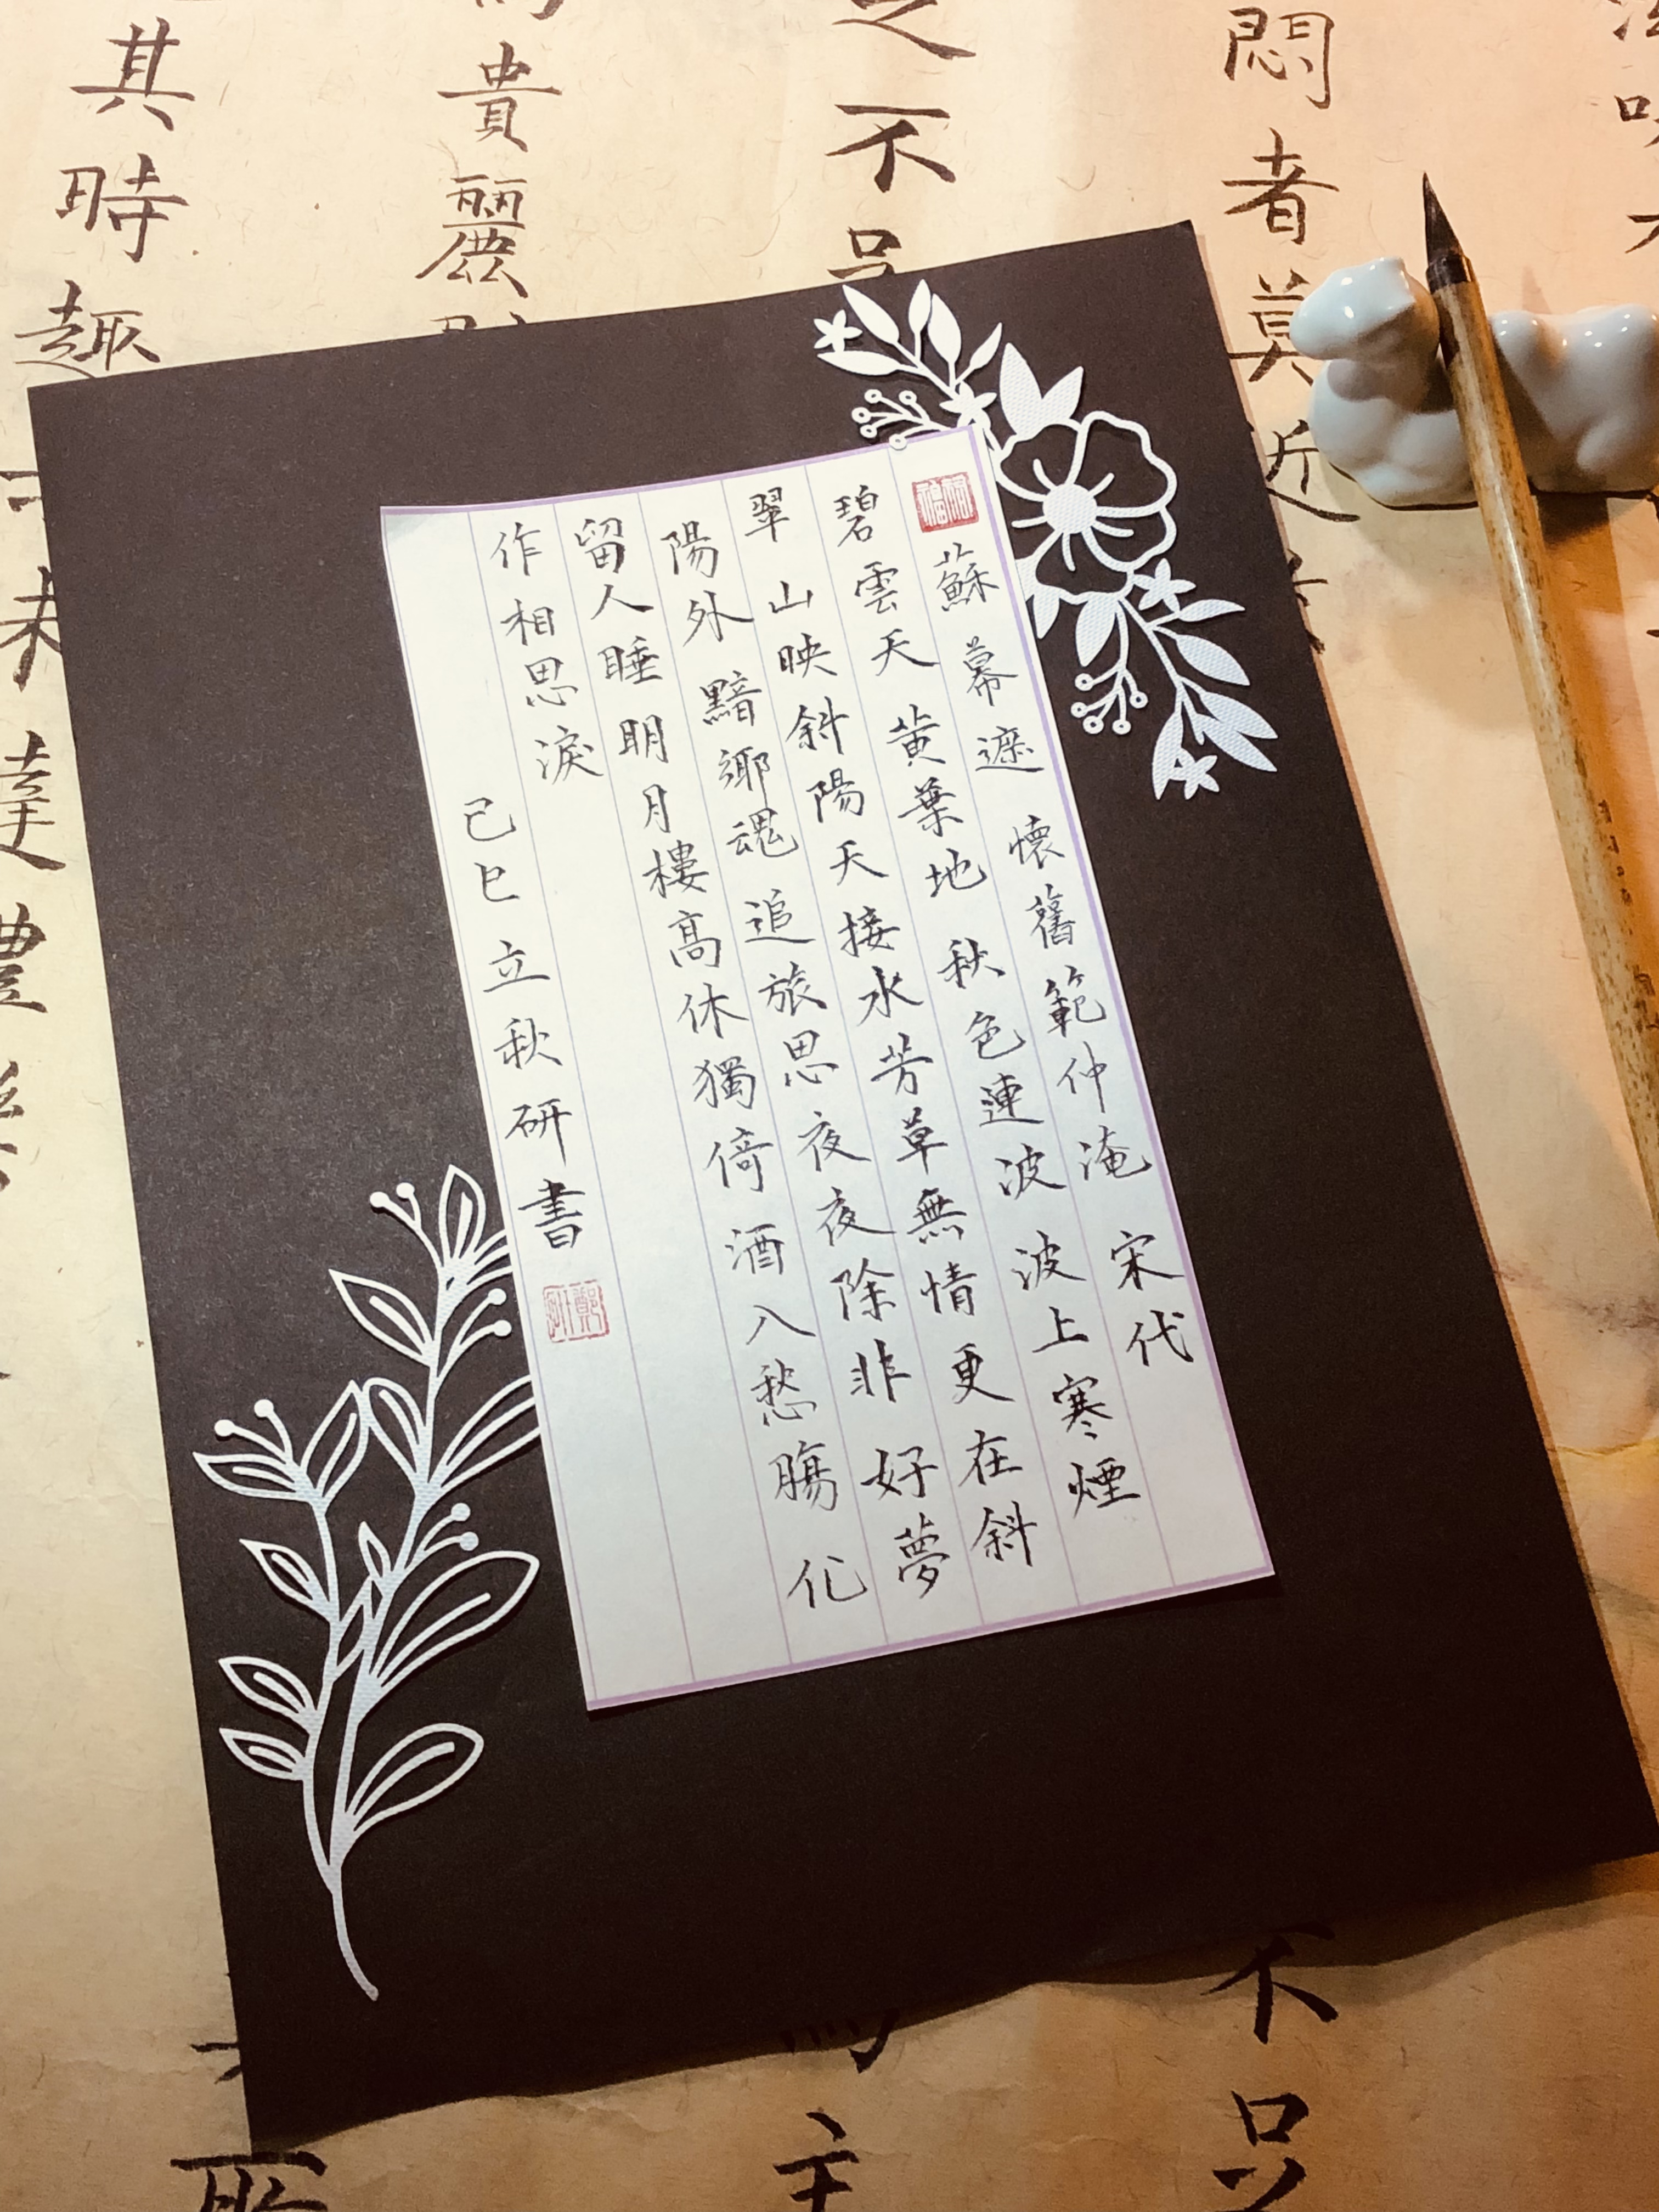 蘇幕遮 懷舊 範仲淹 宋代
碧雲天 黃葉地 秋色連波 波上寒煙
翠 山映斜陽天接水芳草無情更在斜
陽外 黯鄉魂 追旅思 夜夜除非 好夢
留人睡 明月樓高休獨倚 酒入愁腸 化
作相思淚
己巳立秋研書
悶者莫近
不
之不
主
貴麗
其時趣
未達禮